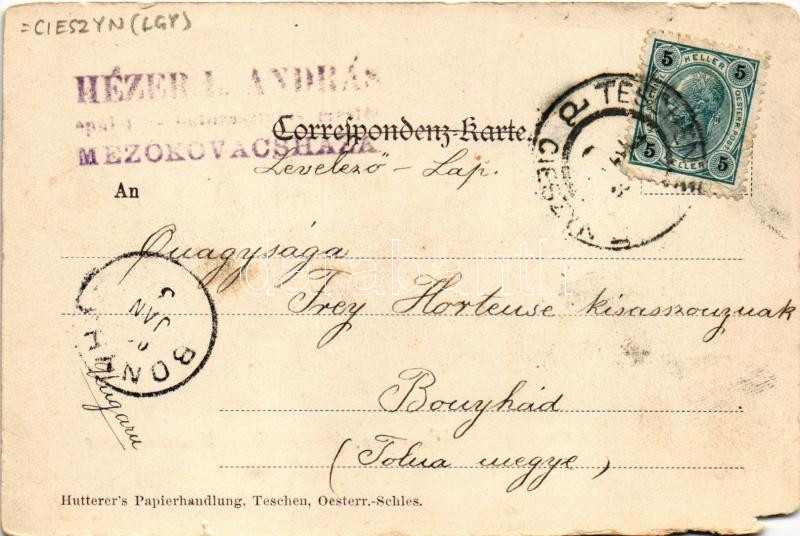 =CIESZYN (LGY)
HÉZER L. ANDRÁS
épület és
MEZŐKOVÁCSHÁZA
Correspondenz-Karte.
Levelező-Lap.
An
Nagysága
Frey Hortense kisasszonynak
Bonyhád
(Tolna megye)
Hungaru
5 HELLER 5
OESTERR. POST
5 HELLER 5
TESCHEN
CIESZYN
BONYHÁD
JAN 3
Hutterer's Papierhandlung, Teschen, Oesterr.-Schles.
darabanth